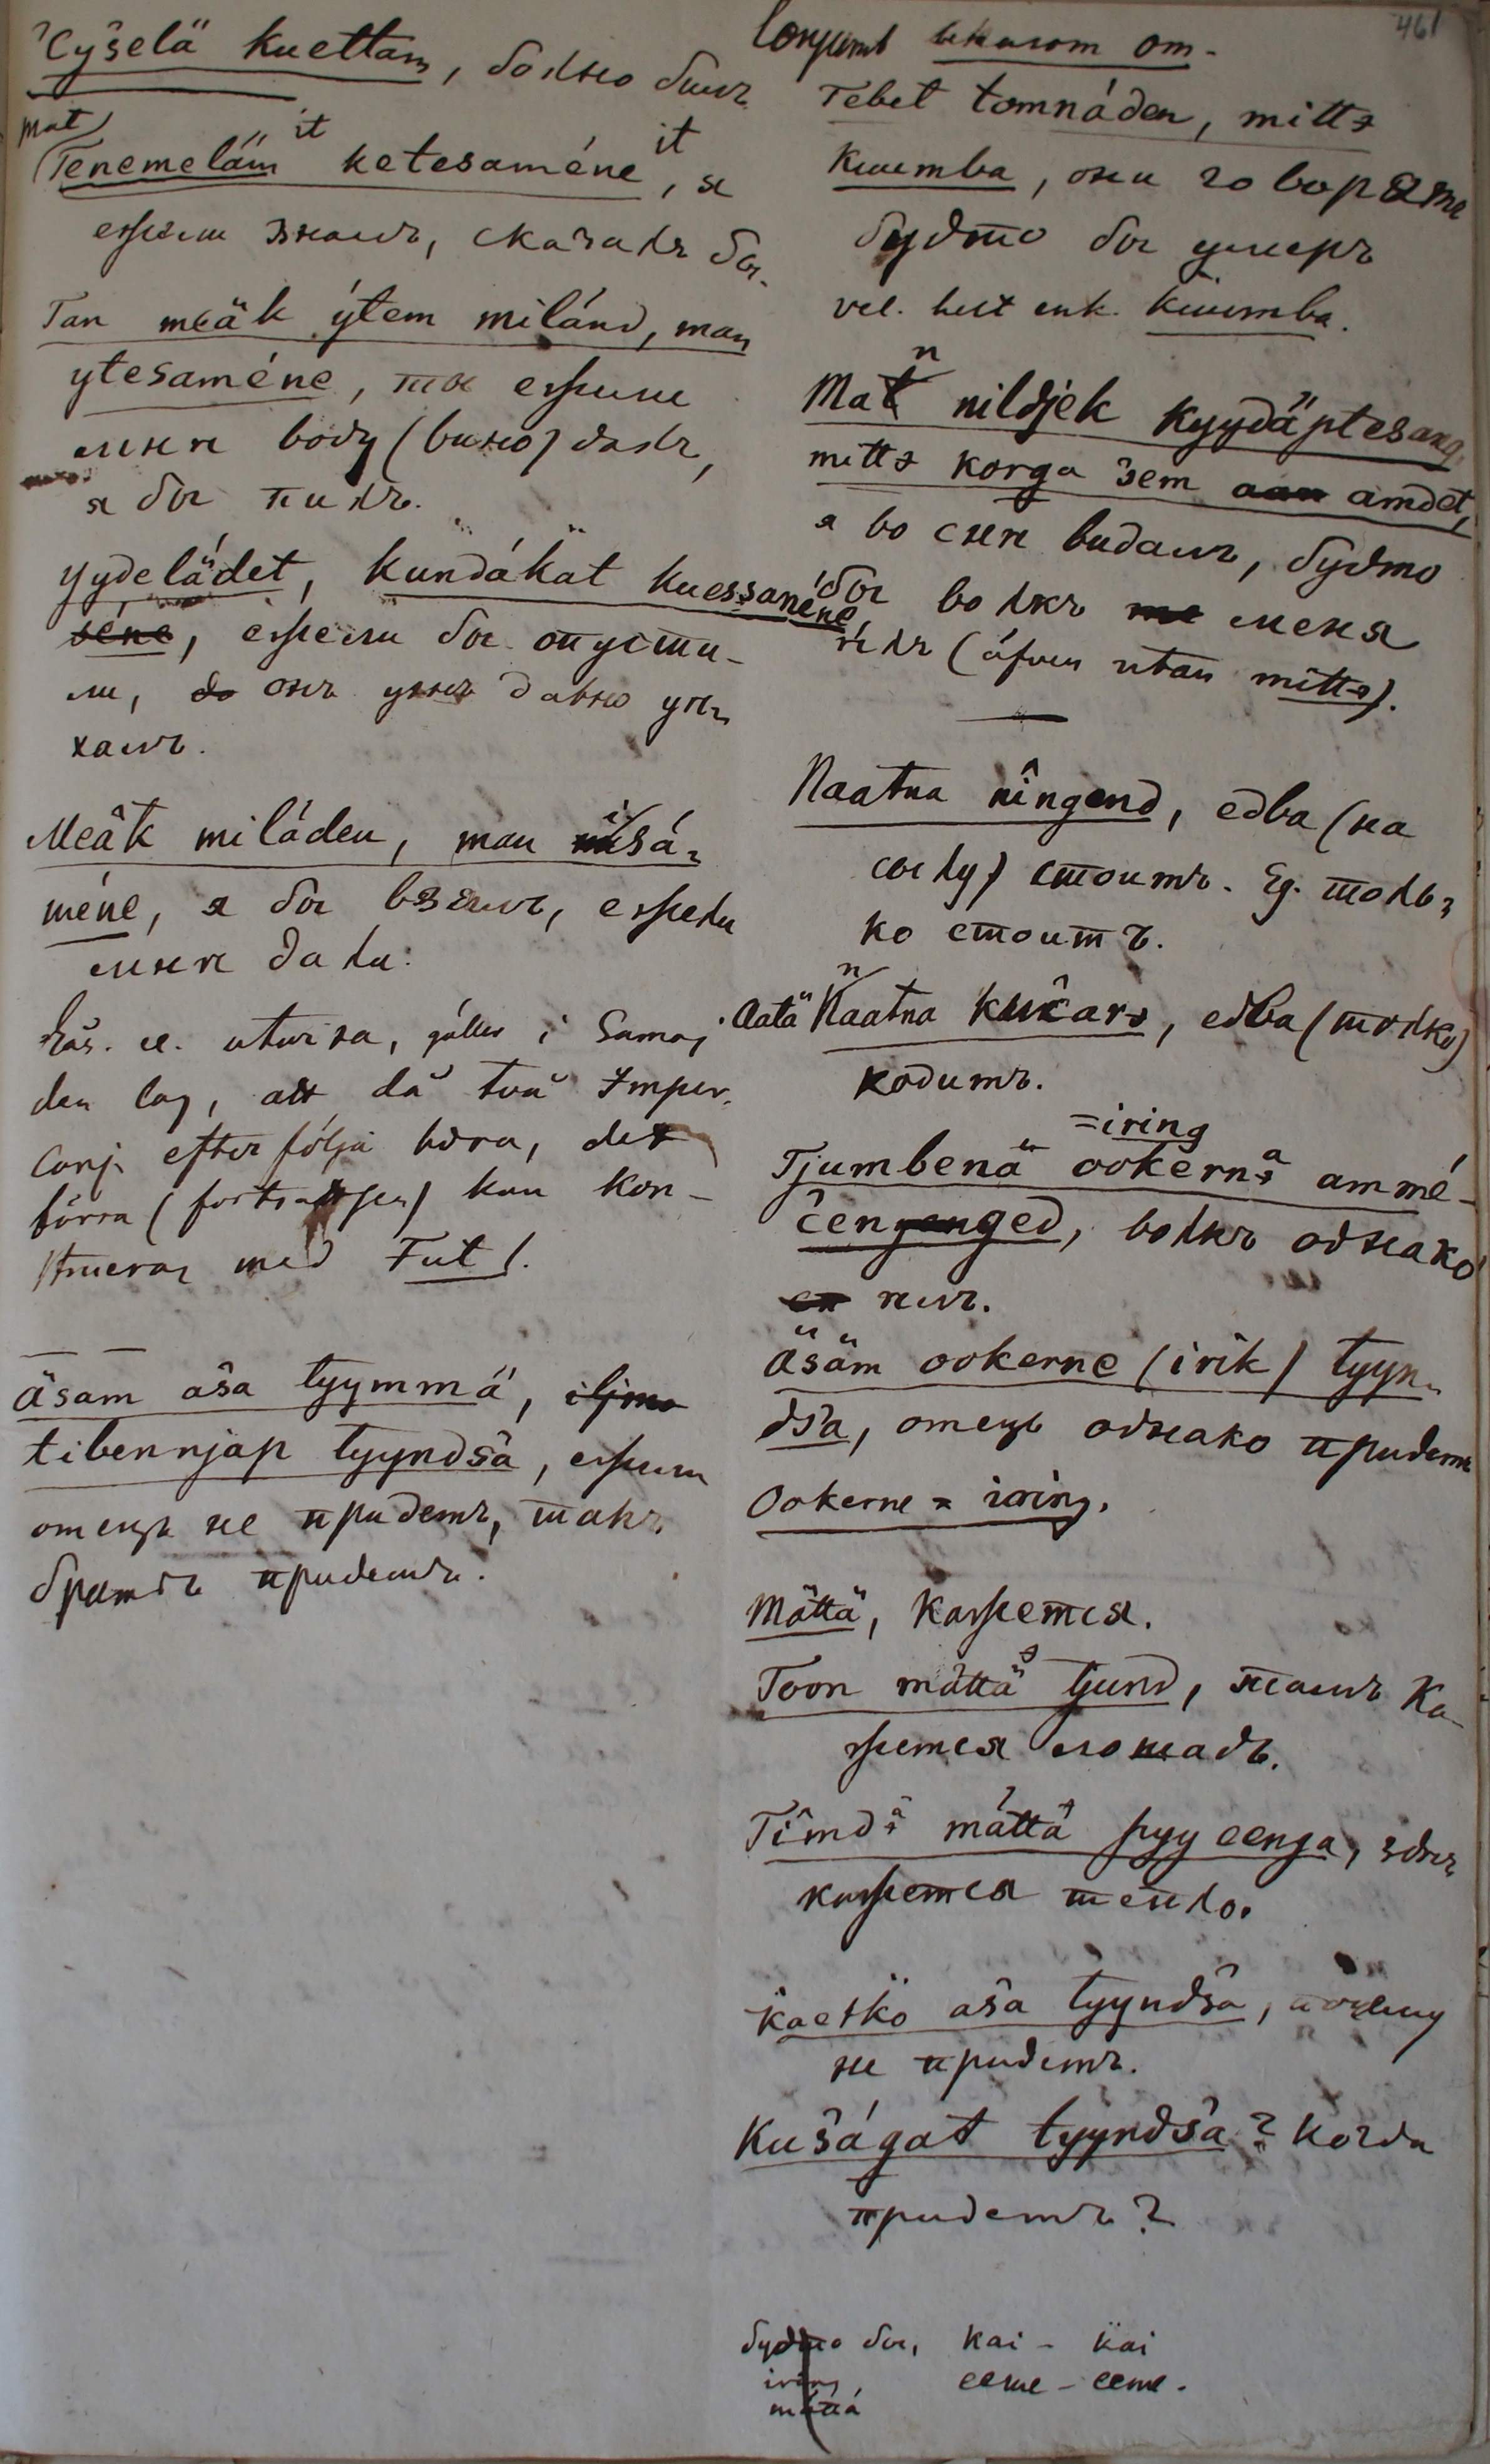 Cyšelä kuettam, болно былъ
mat it it
Tenemeläm ketesaméne, я
ежели зналъ, сказалъ бы.
Tan meäk ÿtem milánd, man
ytesaméne, ты ежели
мнѣ воду (вино) далъ,
я бы пилъ.
yydelädet, kundákät kuessanéne
séne, ежели бы опусти-
ли, онъ ужъ давно уѣ-
халъ.
Meäk miláden, man isá-
méne, я бы взялъ, ежели
мнѣ дали.
utvisa, gäller i Samoj.
den lag, att då två Imper.
Conj. efter följa hvra, det
förra (fortsattsen) kan kon-
strueras med Fut.
Äsam aša tyymmä,
tibennjap tyyndšä, ежели
отецъ не придетъ, такъ
братъ придетъ.
461
от-
Tebet tomnáden, mitta
kuumba, они говорятъ
будто бы умеръ
vel. helt enk. kuumba.
n
Mat nildjek kyydäptesang
mitta korga šem amdet,
я во снѣ видалъ, будто
бы волкъ меня
ѣлъ (äfven utan mitta).
Naatna nîngend, едва (на
силу) стоитъ. Eg. толь-
ко стоитъ.
n
Aatä Naatna kučara, едва (только)
ходитъ.
=iring
Tjumbenä ookerna ammé-
čenged, волкъ однако
ѣлъ.
Äsäm ookerne (irik) tyyn-
dša, отецъ однако придетъ
Ookerne = iring.
Mättä, кажется.
Toon mättä tjund, тамъ ка-
жется лошадь.
Tîmda mättä pyy eenga, здѣсь
кажется тепло.
Kaetko aša tyyndšä, почему
не придетъ.
Kušágat tyyndšä? Когда
придетъ?
будто бы, kai - kai
iring, eeme - eeme.
mättä